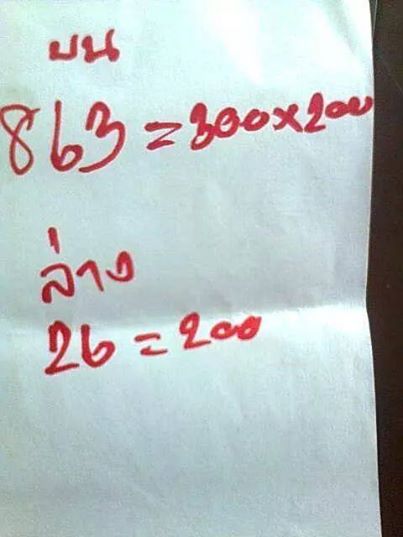 บน
863 = 300x200
ล่าง
26 = 200